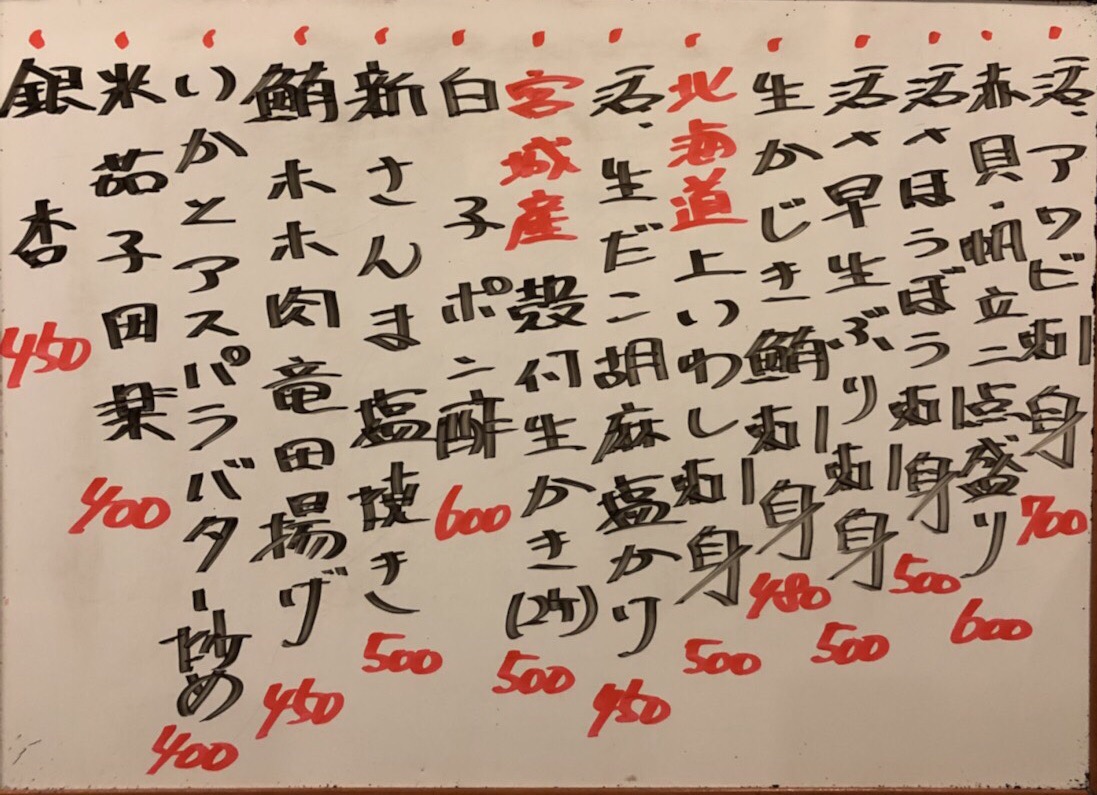 活、アワビ刺身 700
赤貝・帆立二点盛り 600
活さほうぼう刺身 500
活さ早生ぶり刺身 500
生かじき鮪刺身 480
北海道上いわし刺身 500
活、生だこ胡麻塩かり 450
宮城産殻付生かき(2ケ) 500
白子ポン酢 600
新さんま塩焼き 500
鮪ホホ肉竜田揚げ 450
いかとアスパラバター炒め 400
米茄子田楽 400
銀杏 450